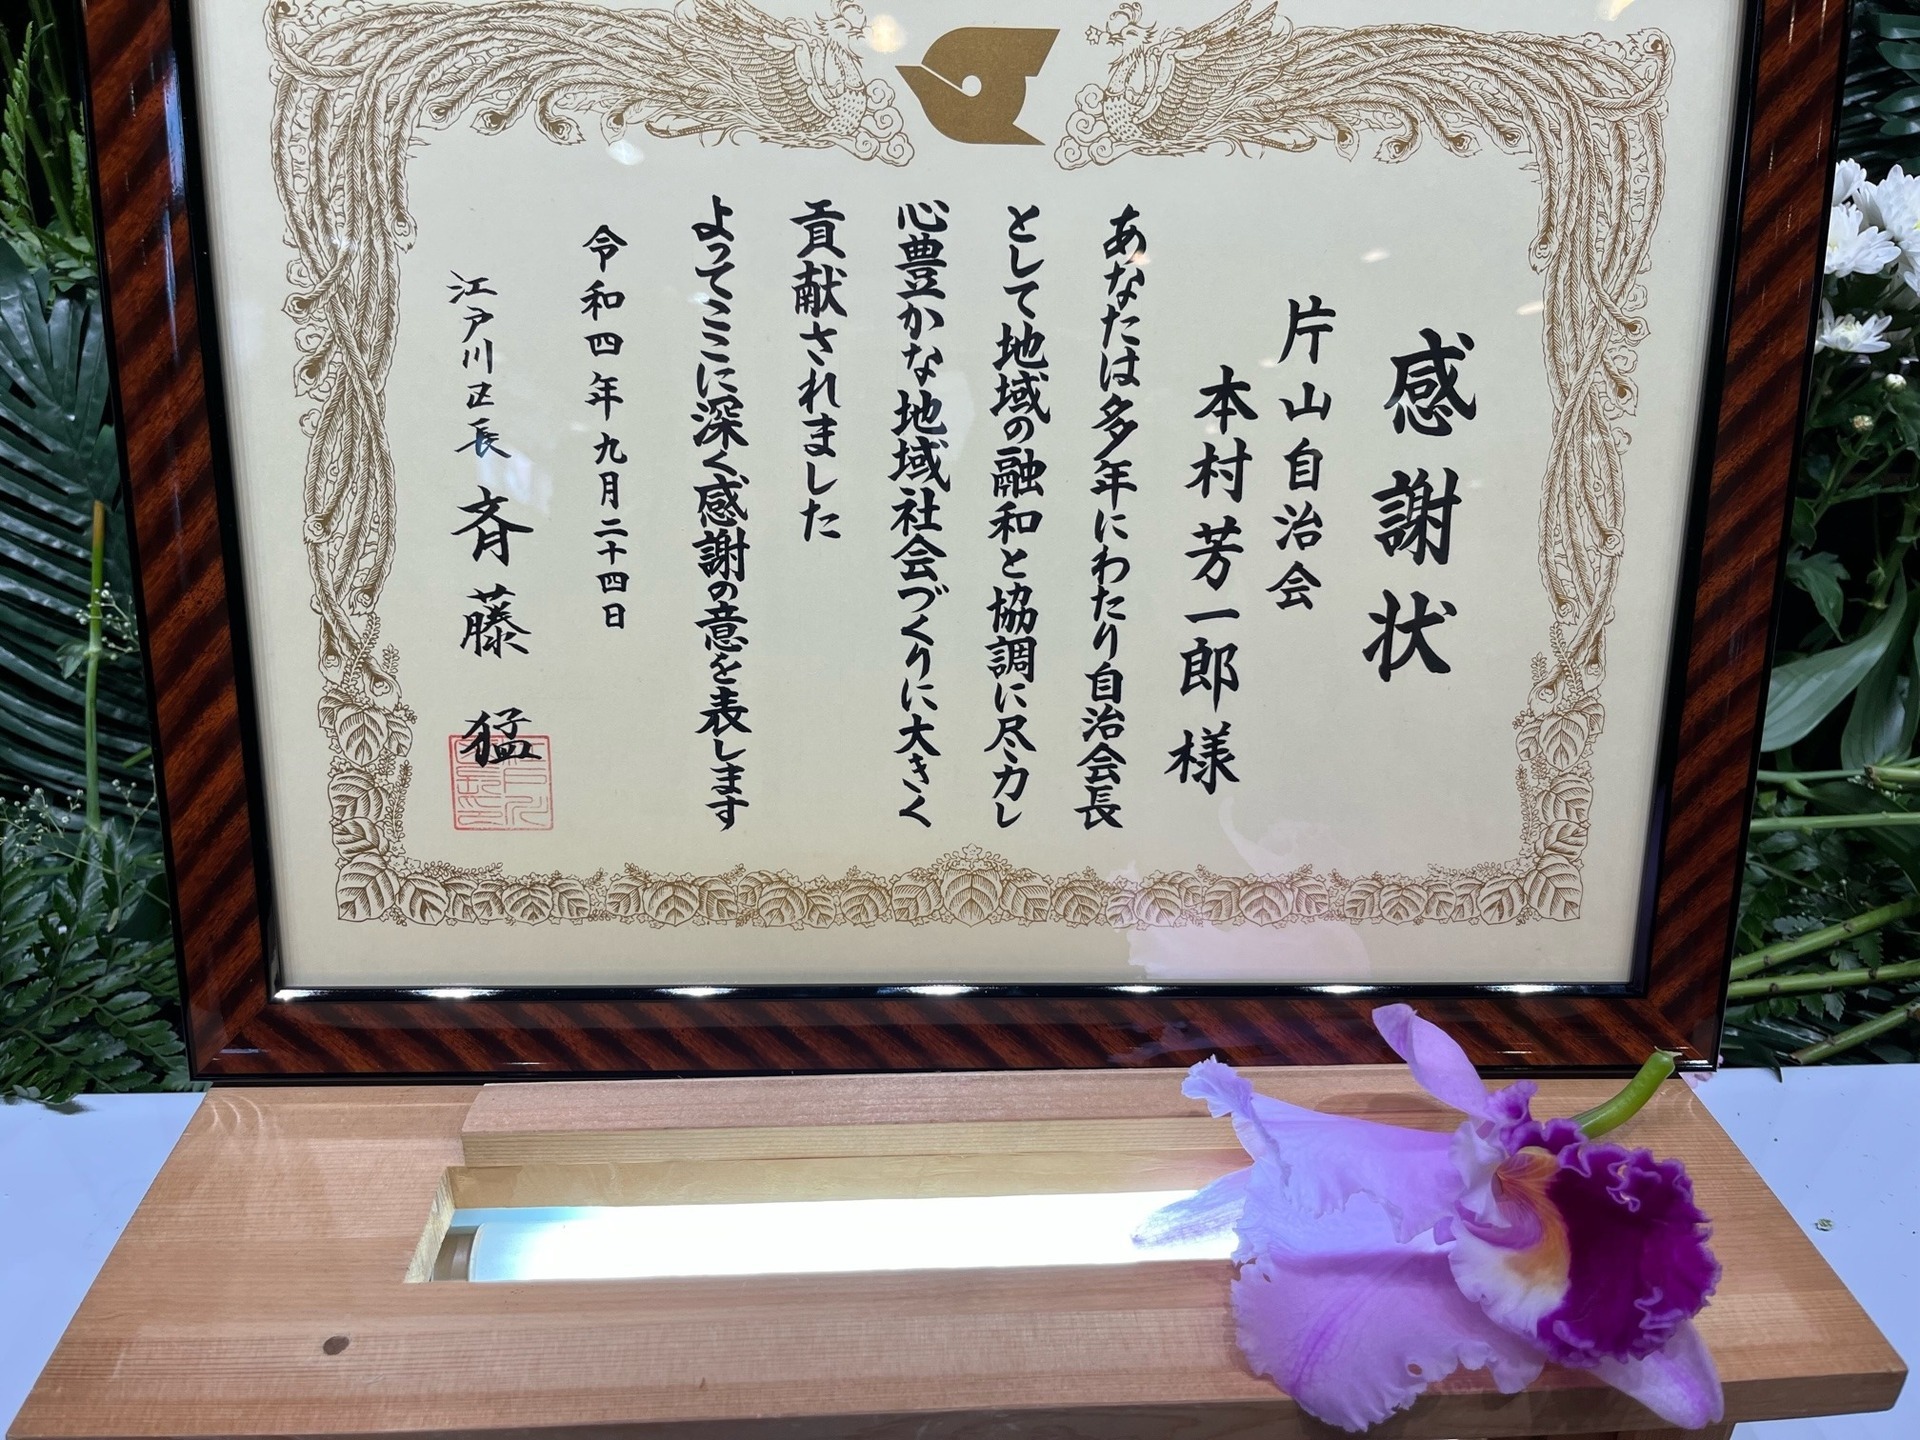 感謝状
片山自治会
本村芳一郎様
あなたは多年にわたり自治会長
として地域の融和と協調に尽力し
心豊かな地域社会づくりに大きく
貢献されました
よってここに深く感謝の意を表します
令和四年九月二十四日
江戸川区長 斉藤 猛